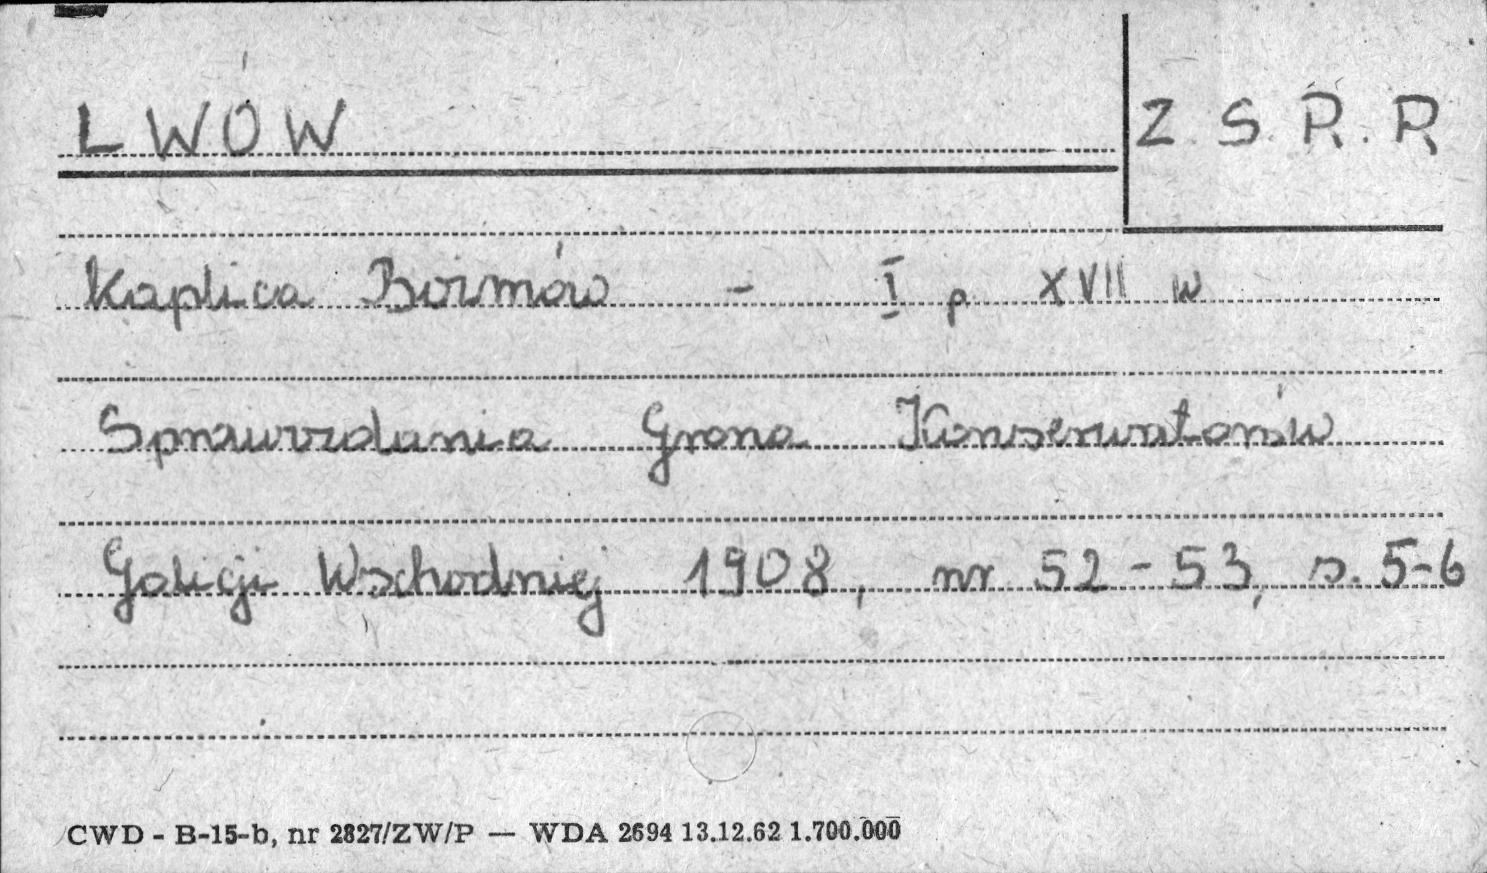 LWÓW
Z. S. R. R
Kaplica Boimów - I p XVII w
Sprawozdania Grona Konserwatorów
Galicji Wschodniej 1908, nr 52-53, s. 5-6
CWD - B-15-b, nr 2827/ZW/P — WDA 2694 13.12.62 1.700.000